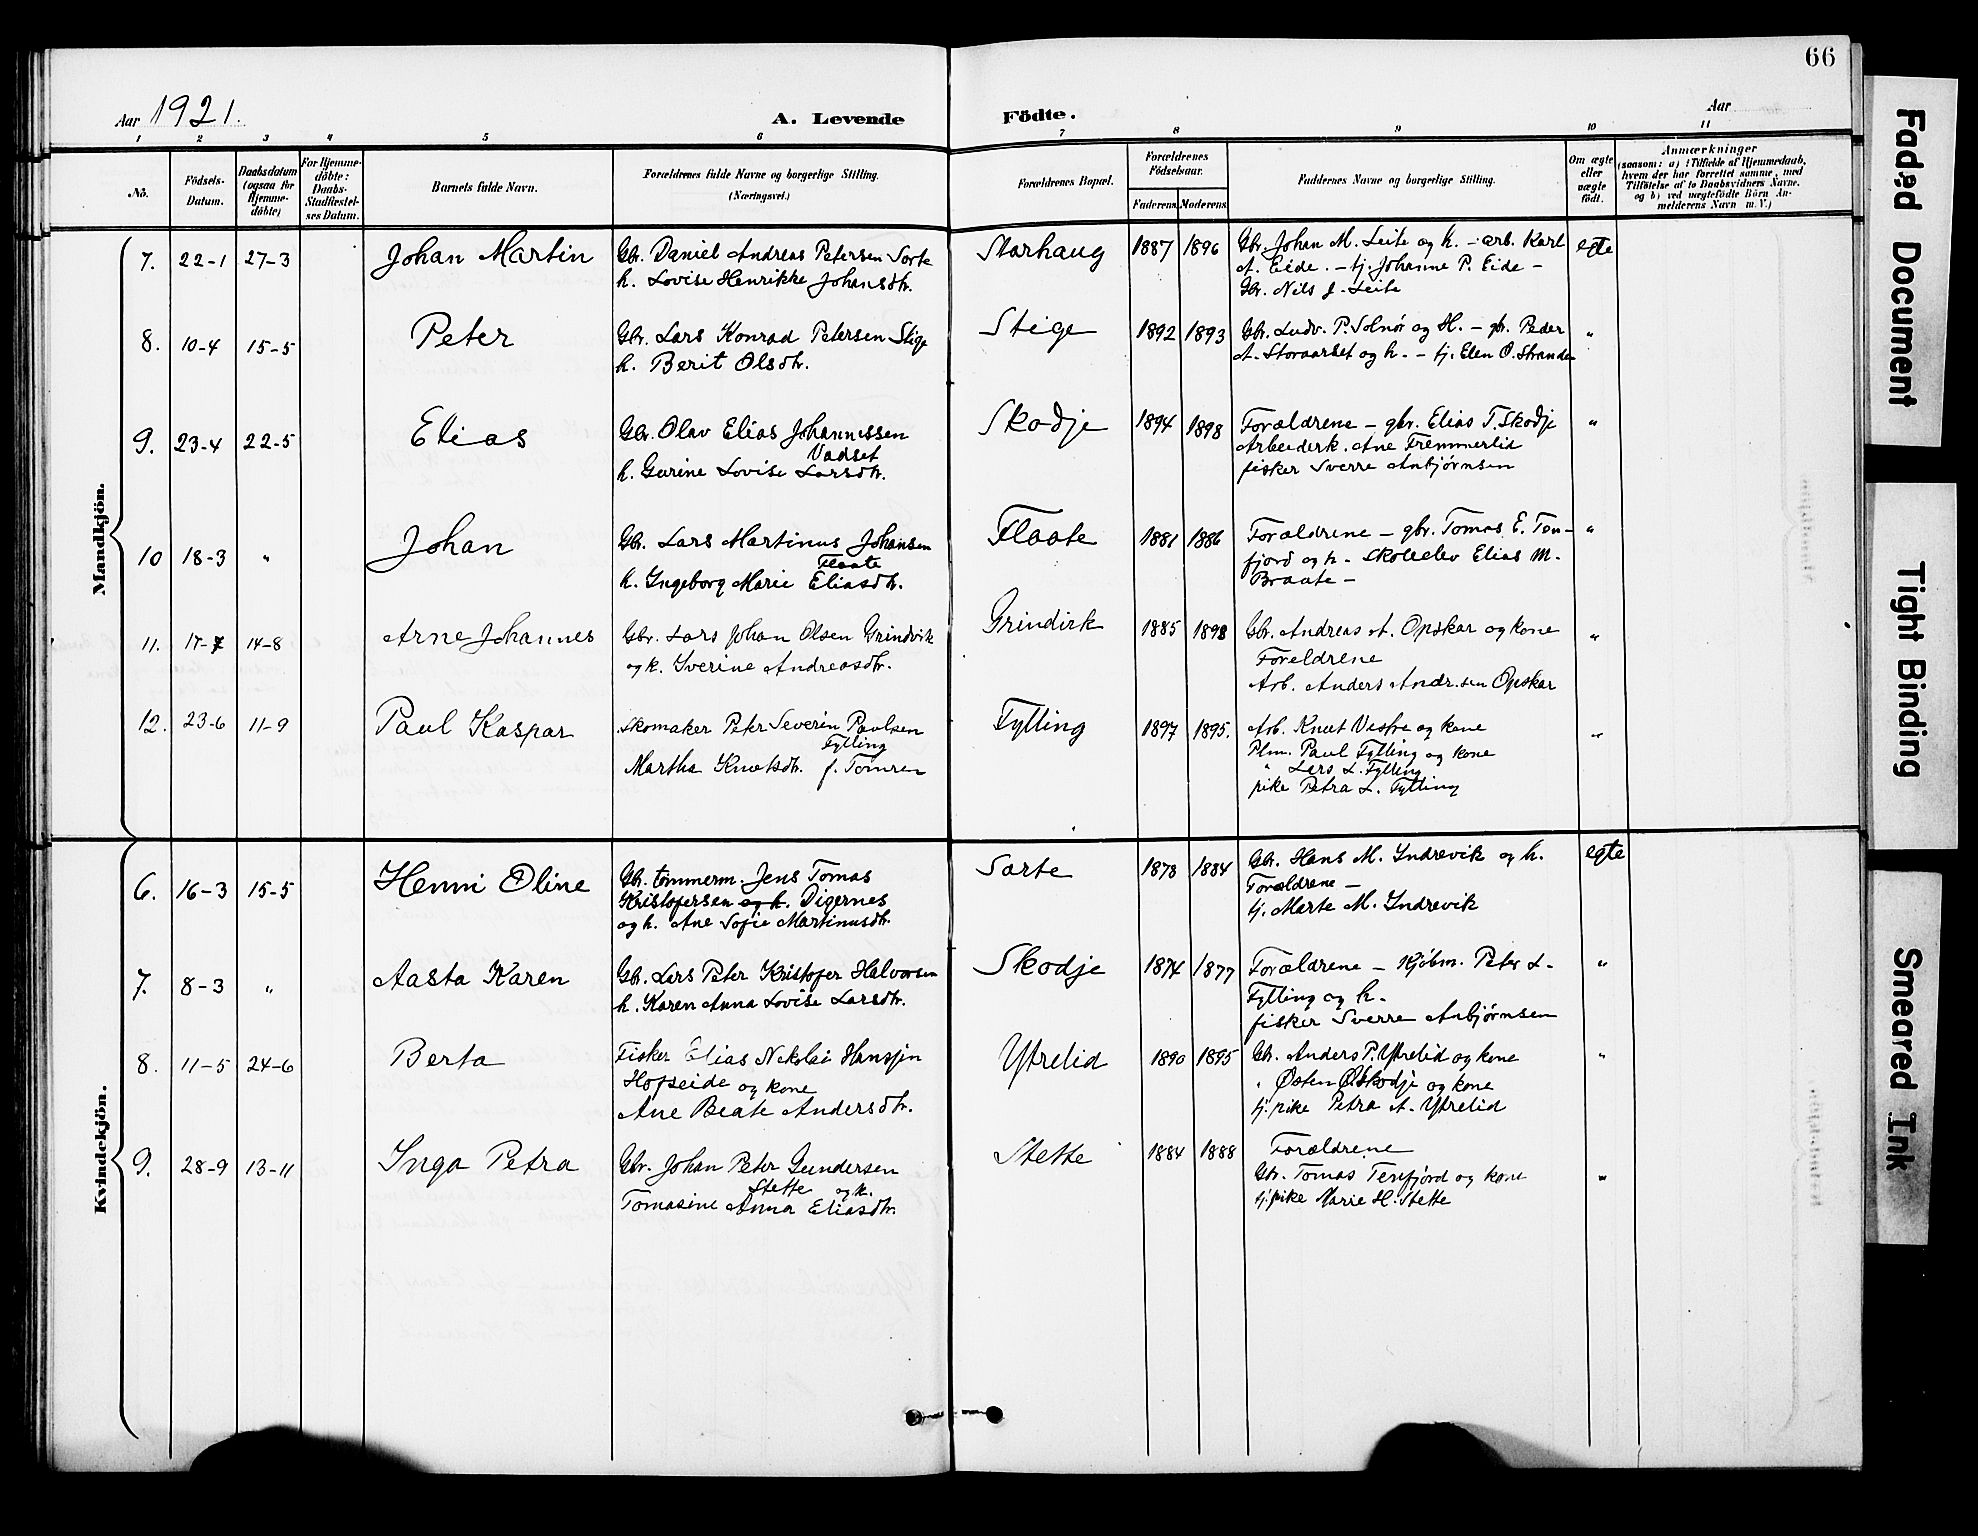 66
Aar 1921.
A. Levende Födte.
Aar
1 2 3 4 5 6 7 8 9 10 11
No.
Födsels-
Datum.
Daabsdatum
(ogsaa for
Hjemme-
döbte)
For Hjemme-
döbte:
Daabs-
Stadfæstel-
ses Datum.
Barnets fulde Navn.
Forældrenes fulde Navne og borgerlige Stilling.
(Næringsvei.)
Forældrenes Bopæl.
Forældrenes
Födselsaar.
Faderens. Moderens.
Faddernes Navne og borgerlige Stilling.
Om ægte
eller
uægte
födt.
Anmærkninger
(saasom: a) i Tilfælde af Hjemmedaab,
hvem der har forrettet samme, med
Tilföielse af to Daabsvidners Navne,
og b) ved uægtefödte Börn An-
melderens Navn m. V.)
Mandkjön.
7. 22-1 27-3 Johan Martin
Gbr. Daniel Andreas Petersen Sorte
h. Lovise Henrikke Johansdtr.
Storhaug 1887 1896
Gbr. Johan M. Leite og h. - arb. Karl
A. Eide. - tj. Johanne P. Eide -
Gbr. Nils J. Leite
egte
8. 10-4 15-5 Peter
Gbr. Lars Konrad Petersen Stige
h. Berit Olsdtr.
Stige 1892 1893
Gbr. Ludv. P. Solnör og H. - gbr. Peder
A. Storaarset og h. - tj. Elen O. Strande
"
9. 23-4 22-5 Elias
Gbr. Olav Elias Johannessen
Vadset
h. Gurine Lovise Larsdtr.
Skodje 1894 1898
Forældrene - gbr. Elias T. Skodje
Arbeiderk. Ane Fremmerlid
fisker Sverre Anbjørnsen
"
10 18-3 " Johan
Gbr. Lars Martinus Johansen
Flaate
h. Ingeborg Marie Eliasdtr.
Flaate 1881 1886
Forældrene - gbr. Tomas E. Ten-
fjord og h. - skoleelev Elias M.
Braate -
"
11. 17-7 14-8 Arne Johannes
Gbr. Lars Johan Olsen Grindvik
og k. Iverine Andreasdtr.
Grindvik 1885 1898
Gbr. Andreas A. Opskar og kone
Foreldrene
Arb. Anders Andr.sen Opskar
"
12. 23-6 11-9 Paul Kaspar
Skomaker Petr Severin Paulsen
Fylling
Martha Knutsdtr. f. Tomren
Fylling 1897 1895.
Arb. Knut Vestre og kone
Plm. Paul Fylling og kone
" Lars L. Fylling
pike Petra L. Fylling
"
Kvindekjön.
6. 16-3 15-5 Henni Oline
Gbr. tømmerm. Jens Tomas
Kristofersen og h. Digernes
og h. Ane Sofie Martinusdtr.
Sorte 1878 1884
Gbr. Hans M. Indrevik og h.
Forældrene -
tj. Marte M. Indrevik
egte
7. 8-3 " Aasta Karen
Gbr. Lars Peter Kristofer Halvorsen
h. Karen Anna Lovise Larsdtr.
Skodje 1874 1877
Forældrene - Kjøbm. Peter L.
Fylling og h.
fisker Sverre Anbjørnsen
"
8. 11-5 24-6 Berta
Fisker Elias Nikolai Hanssøn
Hofseide og kone
Ane Beate Andersdtr.
Ytrelid 1890 1895
Gbr. Anders P. Ytrelid og kone
" Østen Ø. Skodje og kone
tj. pike Petra A. Ytrelid
"
9. 28-9 13-11 Inga Petra
Gbr. Johan Peter Gundersen
Stette og k.
Tomasine Anna Eliasdtr.
Stette 1884 1888
Forældrene
Gbr. Tomas Tenfjord og kone
tj. pike Marie H. Stette
"
Faded Document
Tight Binding
Smeared Ink